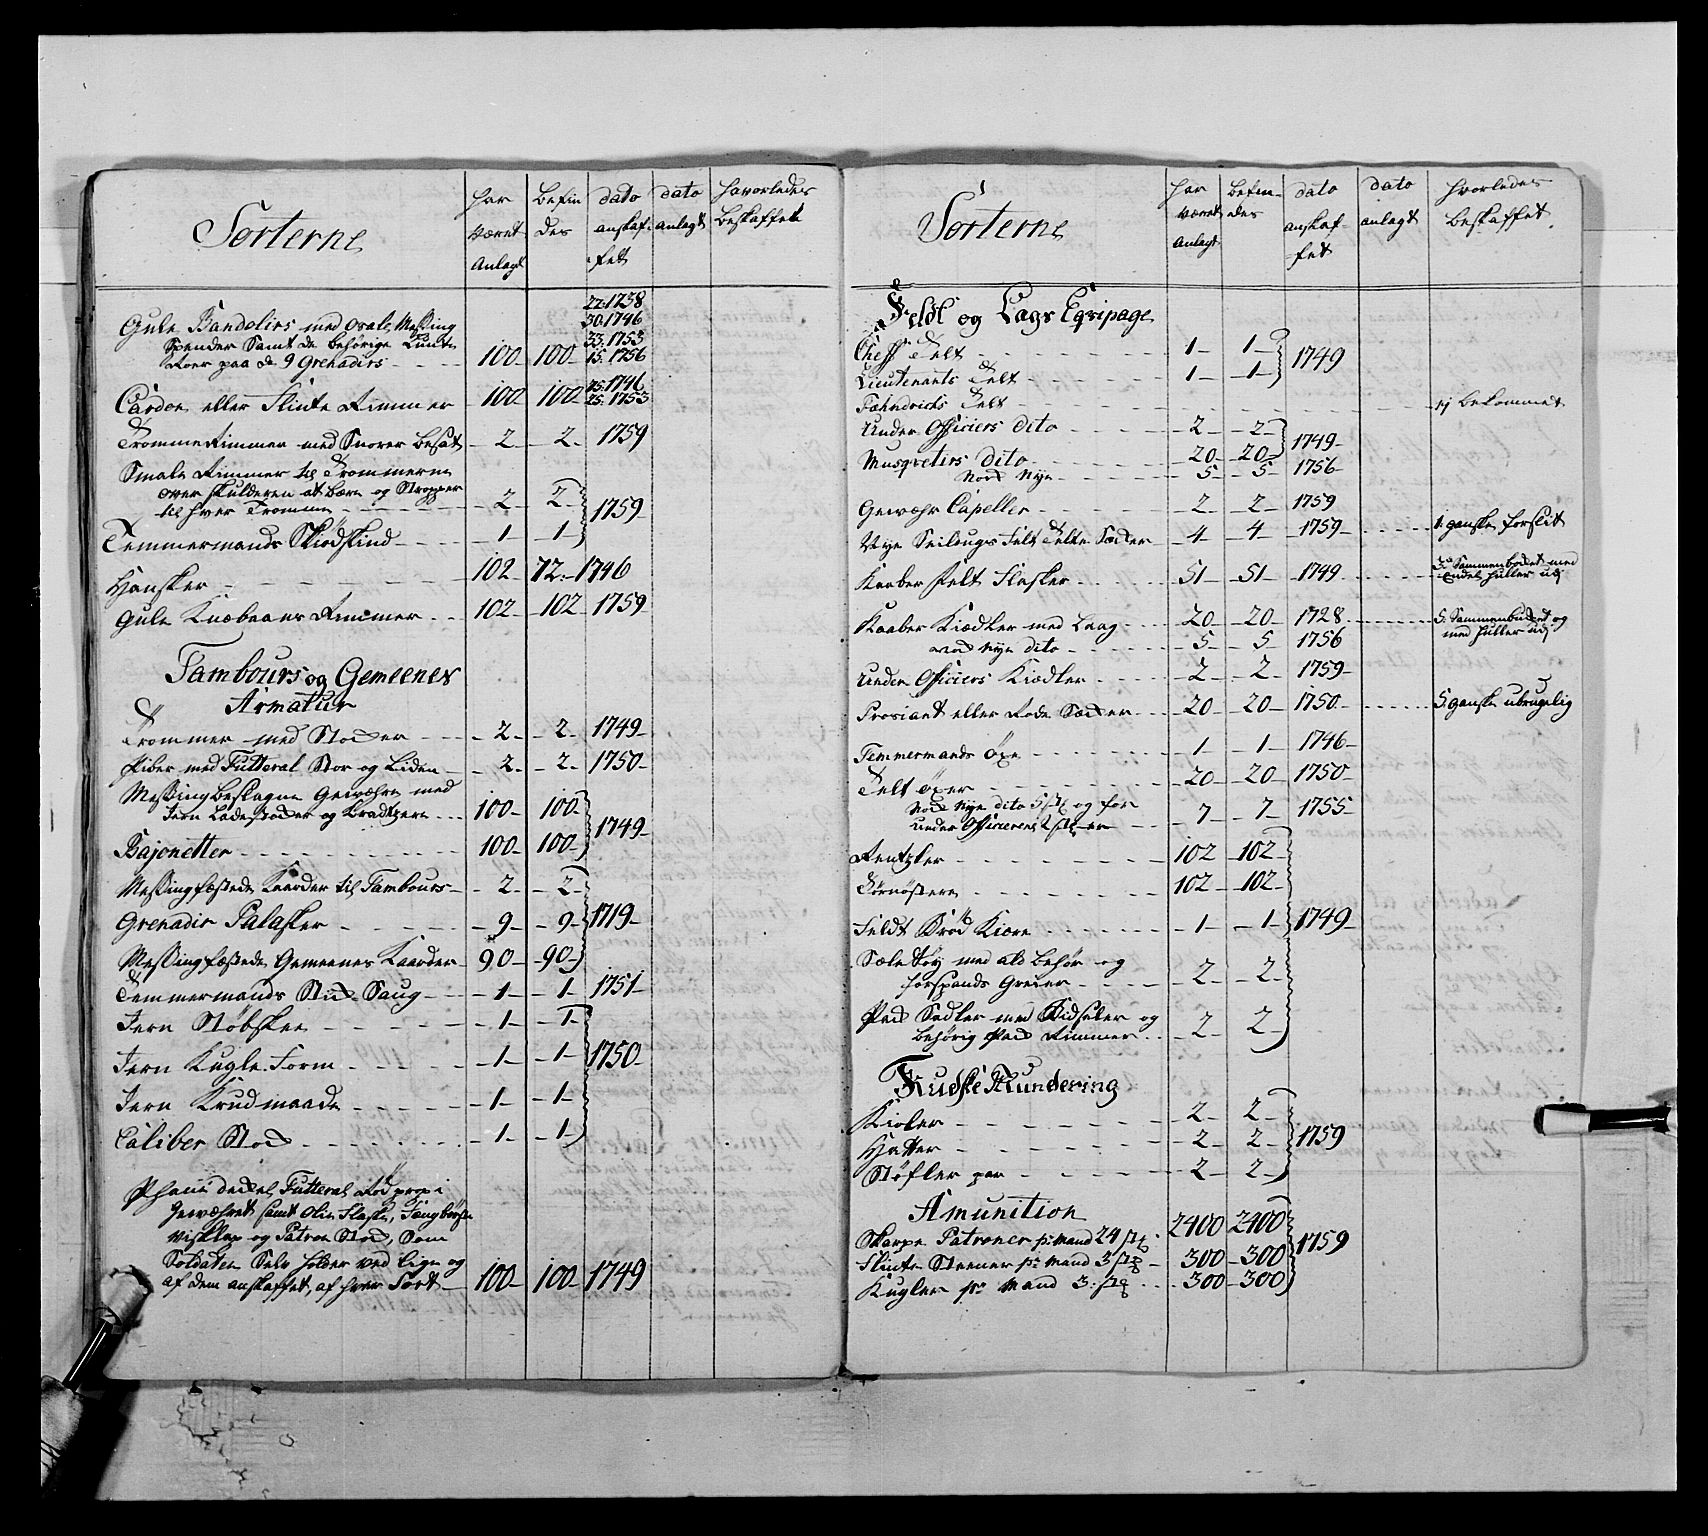 Sorterne | har været Anlagt | befin des | dato anskaf- fet | dato anlagt | havorledes beskaffet
Gule Bandelirs med ovale Messing
Spender Samt de behørige Lunte
Roer paa de 9 Grenadirs - - - 100 - 100 - 22: 1738 30: 1746 33: 1753 15: 1756
Cardoe eller Flinte Rimmer 100 - 100 - 75: 1746 25: 1753
Tromme Rimmer med Snorer besat - 2 - 2 - 1759
Smale Rimmer til Trommerne
over skulderen at bære og Stropper
til hver Tromme - - - 2 - 2 -
Temmermands Skiødskind - - - 1 - 1 - 1759
Hansker - - - 102 - 72 - 1746
Gule Knæbaans Rimmer - - 102 - 102 1759
Tambours og Gemeenes
Armatur
Trommer med Stokker - - - 2 - 2 - 1749
Piber med Futteral Stor og Liden - 2 - 2 - 1750
Messingbeslagne Gewæhre med
Jern Ladestokker og Kradtzere - - 100 - 100
Bajonetter - - - 100 - 100 - 1749
Messingfæstede Kaarder til Tambours - 2 - 2
Grenadir Palasker - - - 9 - 9 - 1719
Messingfæstede Gemeenes Kaarder - 90 - 90
Temmermands Stik Saug - - 1 - 1 - 1751
Jern Støbskee - - - 1 - 1
Jern Kugle Form - - - 1 - 1 - 1750
Jern Krudmaade - - - 1 - 1
Caliber Stok - - - 1 - 1
Phanedekel Futteral Rød prop i
Gewæhret samt Olie Flaske, Fængbørste
Visklap og Patron Stok, Som
Soldaten Selv holder ved lige og
af dem anskaffet, af hver Sort - 100 - 100 - 1749
Sorterne | har været Anlagt | befin- des | dato anskaf- fet | dato anlagt | hvorledes beskaffet
Feldt og Lags Eqvipage
Cheff Telt - - - 1 - 1 - 1749
Lieutenants Telt - - - 1 - 1
Fæhndrichs Telt - - - ej bekommet
Under Officiers dito - - - 2 - 2
Musqvetirs dito - - - 20 - 20 - 1749
Nok Nye - - - 5 - 5 - 1756
Gewæhr Capeller - - - 2 - 2 - 1759
Nye Seildugs Felt Telte Sækker - 4 - 4 - 1759 - - - 1 ganske forslit
Kaaber Felt Flasker - - - 51 - 51 - 1749 - - - 30 Sammenbødet med Endel huller udj
Kaaber Kiædler med Laag - - - 20 - 20 - 1728 - - - 5 Sammenbødet og med huller udj
Nok Nye dito - - - 5 - 5 1756
Under Officiers Kiædler - - - 2 - 2 1759
Proviant eller Rode Sækker - - - 20 - 20 - 1750 - - - 5 ganske ubrugelig
Temmermands Øxe - - - 1 - 1 - 1746
Telt Øxer - - - 20 - 20 - 1750
Nok Nye dito 5 stk og for
Under Officererne 2 stk er - - 7 - 7 - 1755
Rentzler - - - 102 - 102
Tørnøstere - - - 102 - 102
Feldt Brød Kiære - - - 1 - 1 - 1749
Sæle tøy med ald behør og
forspands Greier - - - 2 - 2
Pak Sadler med Kidseler og
behørig Pak Rimmer - - 2 - 2
Kudske Mundering
Kioler - - - 2 - 2
Hatter - - - 2 - 2 - 1759
Støfler par - - - 2 - 2
Amunition
Skarpe Patroner pr Mand 24 stk - 2400 - 2400
Flinte Steener pr Mand 3 stk - 300 - 300 - 1759
Kugler pr Mand 3 stk - - 300 - 300